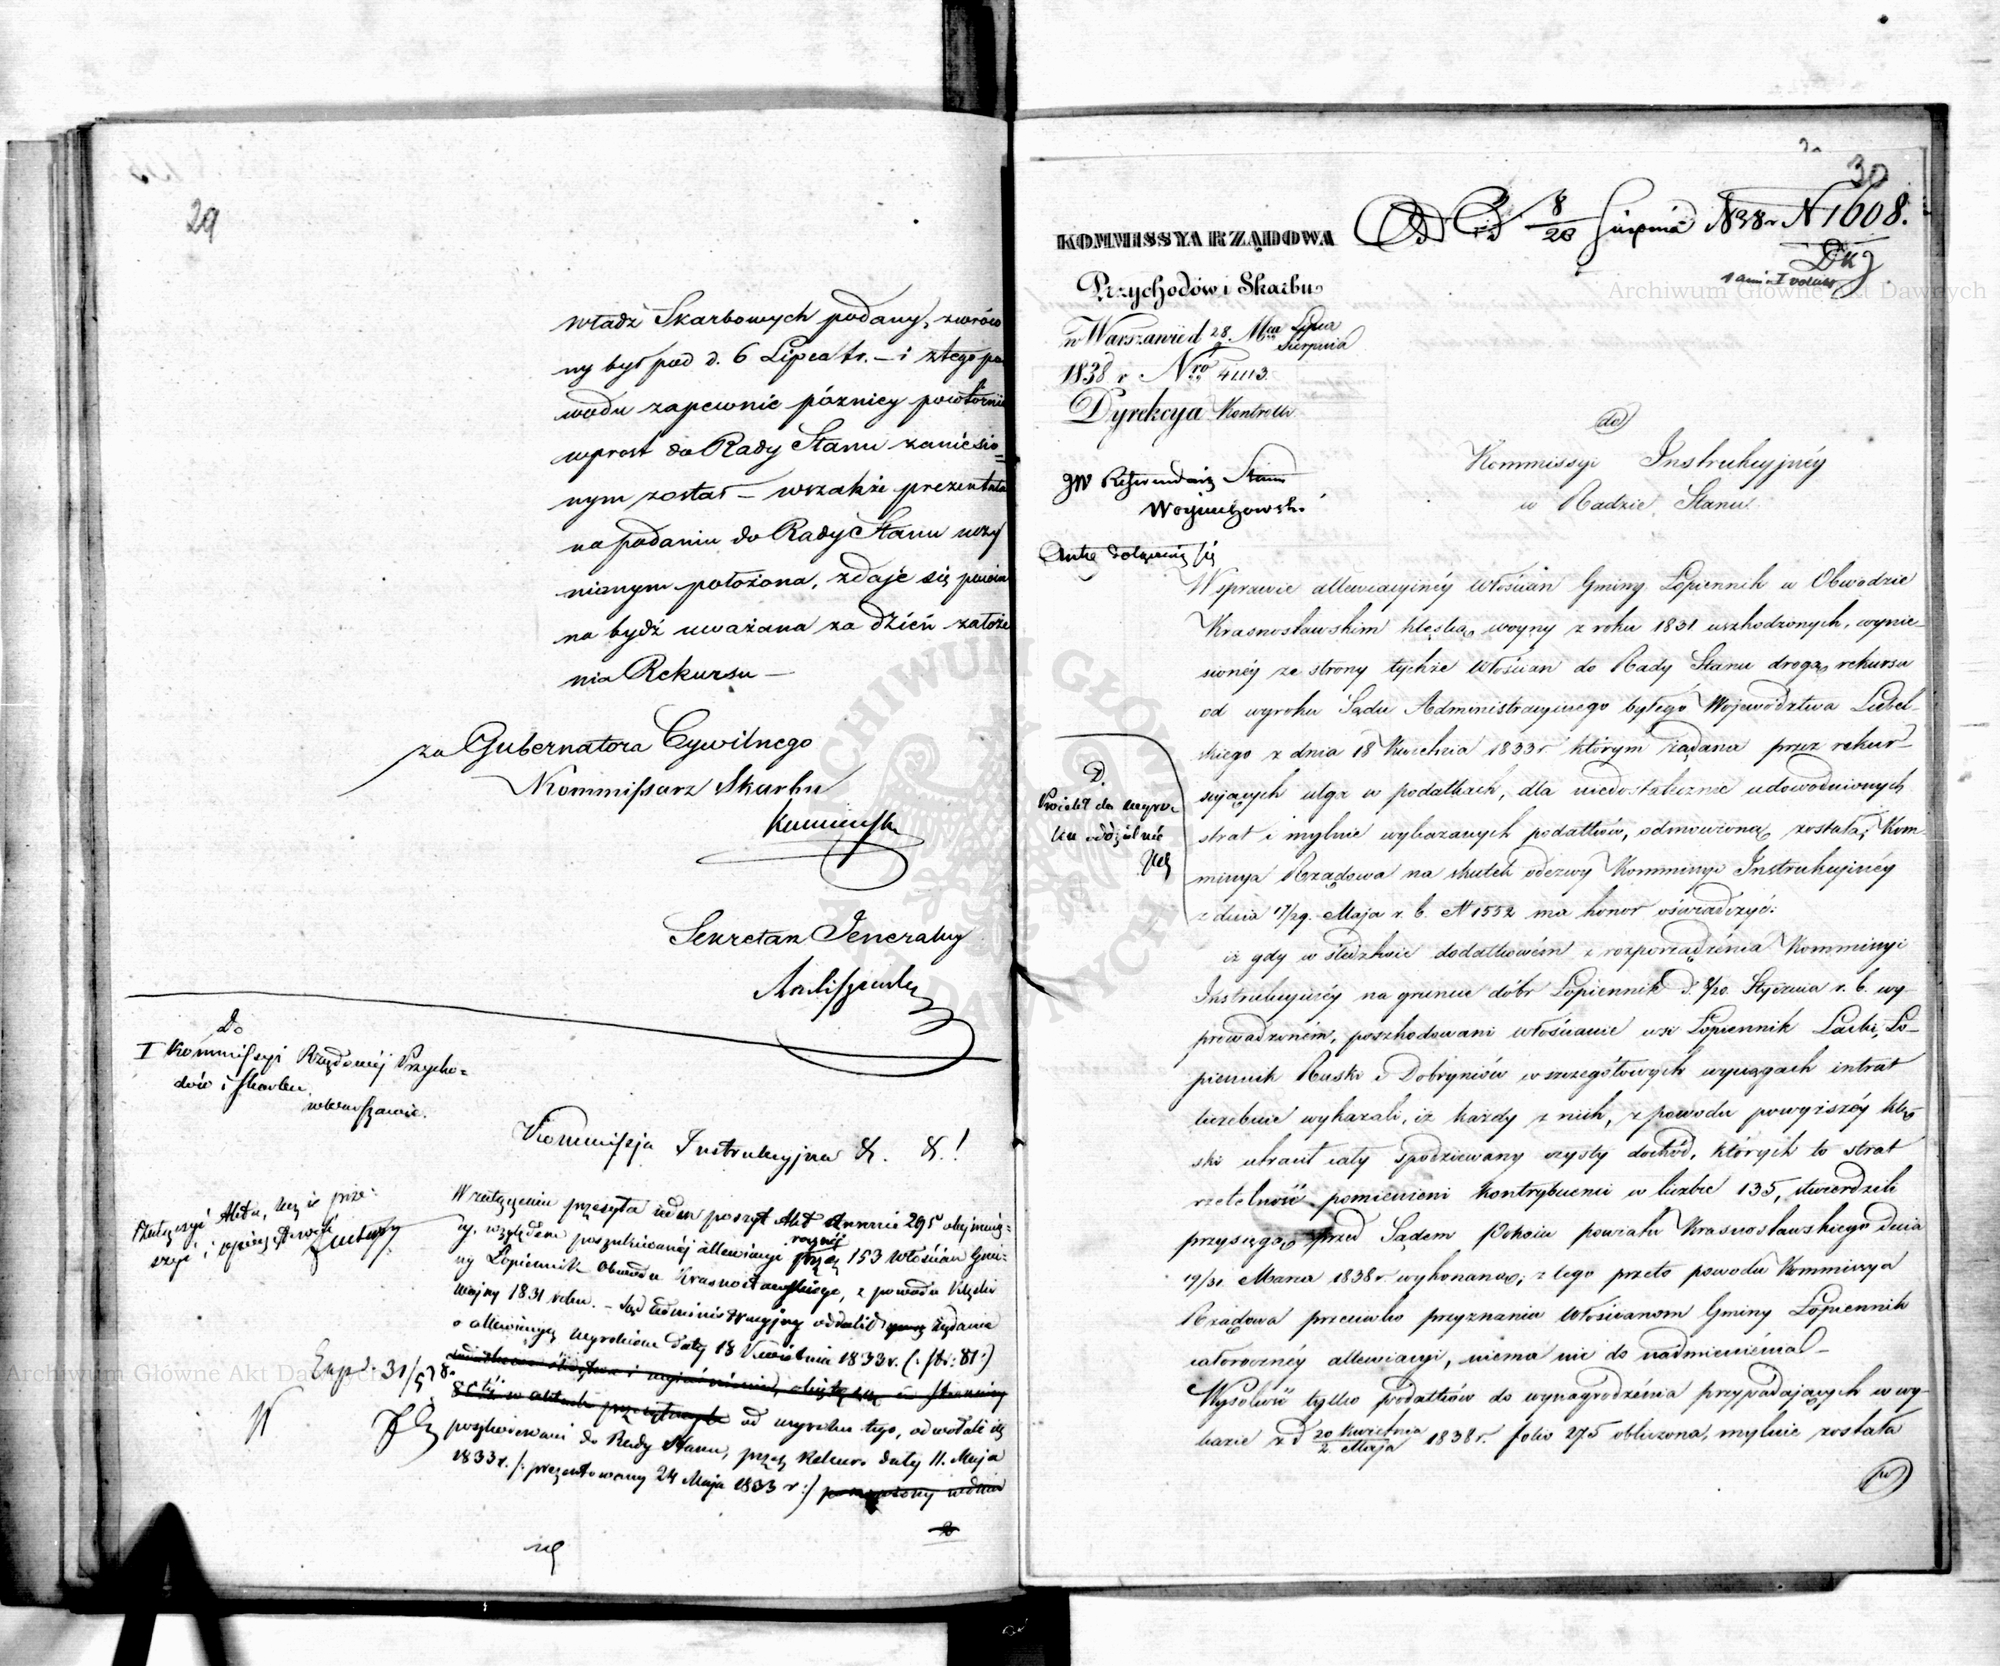 29
władz Skarbowych podany, zwróco
ny był pod d. 6 Lipca br. – i z tego po
wodu zapewnie pózniey powtórnie
wprost do Rady Stanu zaniesio=
nym został – wszakże prezentata
na podaniu do Rady Stanu uczy
nionym położona, zdaje się powin
na bydź uważana za dzień założe
nia Rekursu –
za Gubernatora Cywilnego
Kommissarz Skarbu
Sekretarz Jeneralny
Do
I Kommissyi Rządowéj Przycho=
dów i Skarbu
w Warszawie.
Kommissja Instrukcyjna &. &.!
W załączeniu przesyła poszyt Akt stronnic 295 obejmują=
cy, względem poszukiwanéj allewiacyi przez 153 Włościan Gmi=
ny Łopiennik Obwodu Krasnostawskiego, z powodu klęski
wojny 1831 roku. – Sąd Administracyjny oddalił żądanie
o allewiacyą wyrokiem daty 18 Kwietnia 1833 r. (: str: 81:)
od wyroku tego, odwołali się
poszkodowani do Rady Stanu, przez Rekurs daty 11. Maja
1833 r. /: prezentowany 24 Maja 1833 r :/
Exp. 31/5 38.
30
KOMMISSYA RZĄDOWA
Przychodów i Skarbu
w Warszawie d 28. Mca Lipca
Sierpnia
1838 r Nro 41113.
Dyrekcya Kontrolli
8/20 Sierpnia 1838 r N 1608.
JW Referendarz Stanu
Wojciechowski
Akta dołączają się
do
Kommissyi Instrukcyjnéy
w Radzie Stanu
W sprawie allewiacyinéy Włościan Gminy Łopiennik w Obwodzie
Krasnostawskim klęską woyny z roku 1831 uszkodzonych, wynie-
sionéy ze strony tychże Włościan do Rady Stanu drogą rekursu
od wyroku Sądu Administracyinego byłego Województwa Lubel-
skiego z dnia 18 Kwietnia 1833 r którym żądana przez rekur-
sujących ulga w podatkach, dla niedostatecznie udowodnionych
strat i mylnie wykazanych podatków, odmówioną została; Kom-
missya Rządowa na skutek odezwy Kommissyi Instrukcyinéy
z dnia 17/29. Maja r. b. N 1552 ma honor oświadczyć:
iż gdy w śledztwie dodatkowém z rozporządzenia Kommissyi
Instrukcyinéy na gruncie dóbr Łopiennik d. 8/20. Stycznia r. b. wy-
prowadzoném, poszkodowani włościanie wsi Łopiennik Lacki, Ło-
piennik Ruski i Dobryniów w szczegółowych wyciągach intrat
liczebnie wykazali, iż każdy z nich, z powodu powyższéy klę-
ski utracił cały spodziewany czysty dochód, których to strat
rzetelność pomienieni kontrybuenci w liczbie 135, stwierdzili
przysięgą przed Sądem Pokoiu powiatu Krasnostawskiego dnia
19/31 Marca 1838 r. wykonaną; z tego przeto powodu Kommissya
Rządowa przeciwko przyznaniu Włościanom Gminy Łopiennik
całorocznéy allewiacyi, niema nic do nadmienienia –
Wysokość tylko podatków do wynagrodzenia przypadających w wy-
kazie z d 20 Kwietnia/2. Maja 1838 r. folio 275 obliczona, mylnie została
D.
Projekt do wyro-
ku oddzielnie
Archiwum Główne Akt Dawnych
Archiwum Główne Akt Dawnych
ARCHIWUM GŁÓWNE AKT DAWNYCH